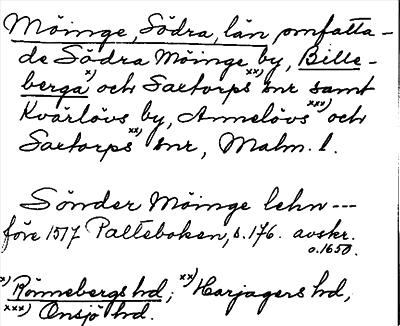 Möinge, Södra, län omfatta-
de Södra Möinge by, Bille-
berga x) och Saxtorps xx) snr samt
Kvärlövs by, Annelövs xxx) och
Saxtorps xx) snr, Malm. l.
Sönder Möinge lehn ---
före 1517 Palteboken, s. 176. avskr.
o. 1650.
x) Rönnebergs hd; xx) Harjagers hd,
xxx) Onsjö hd.